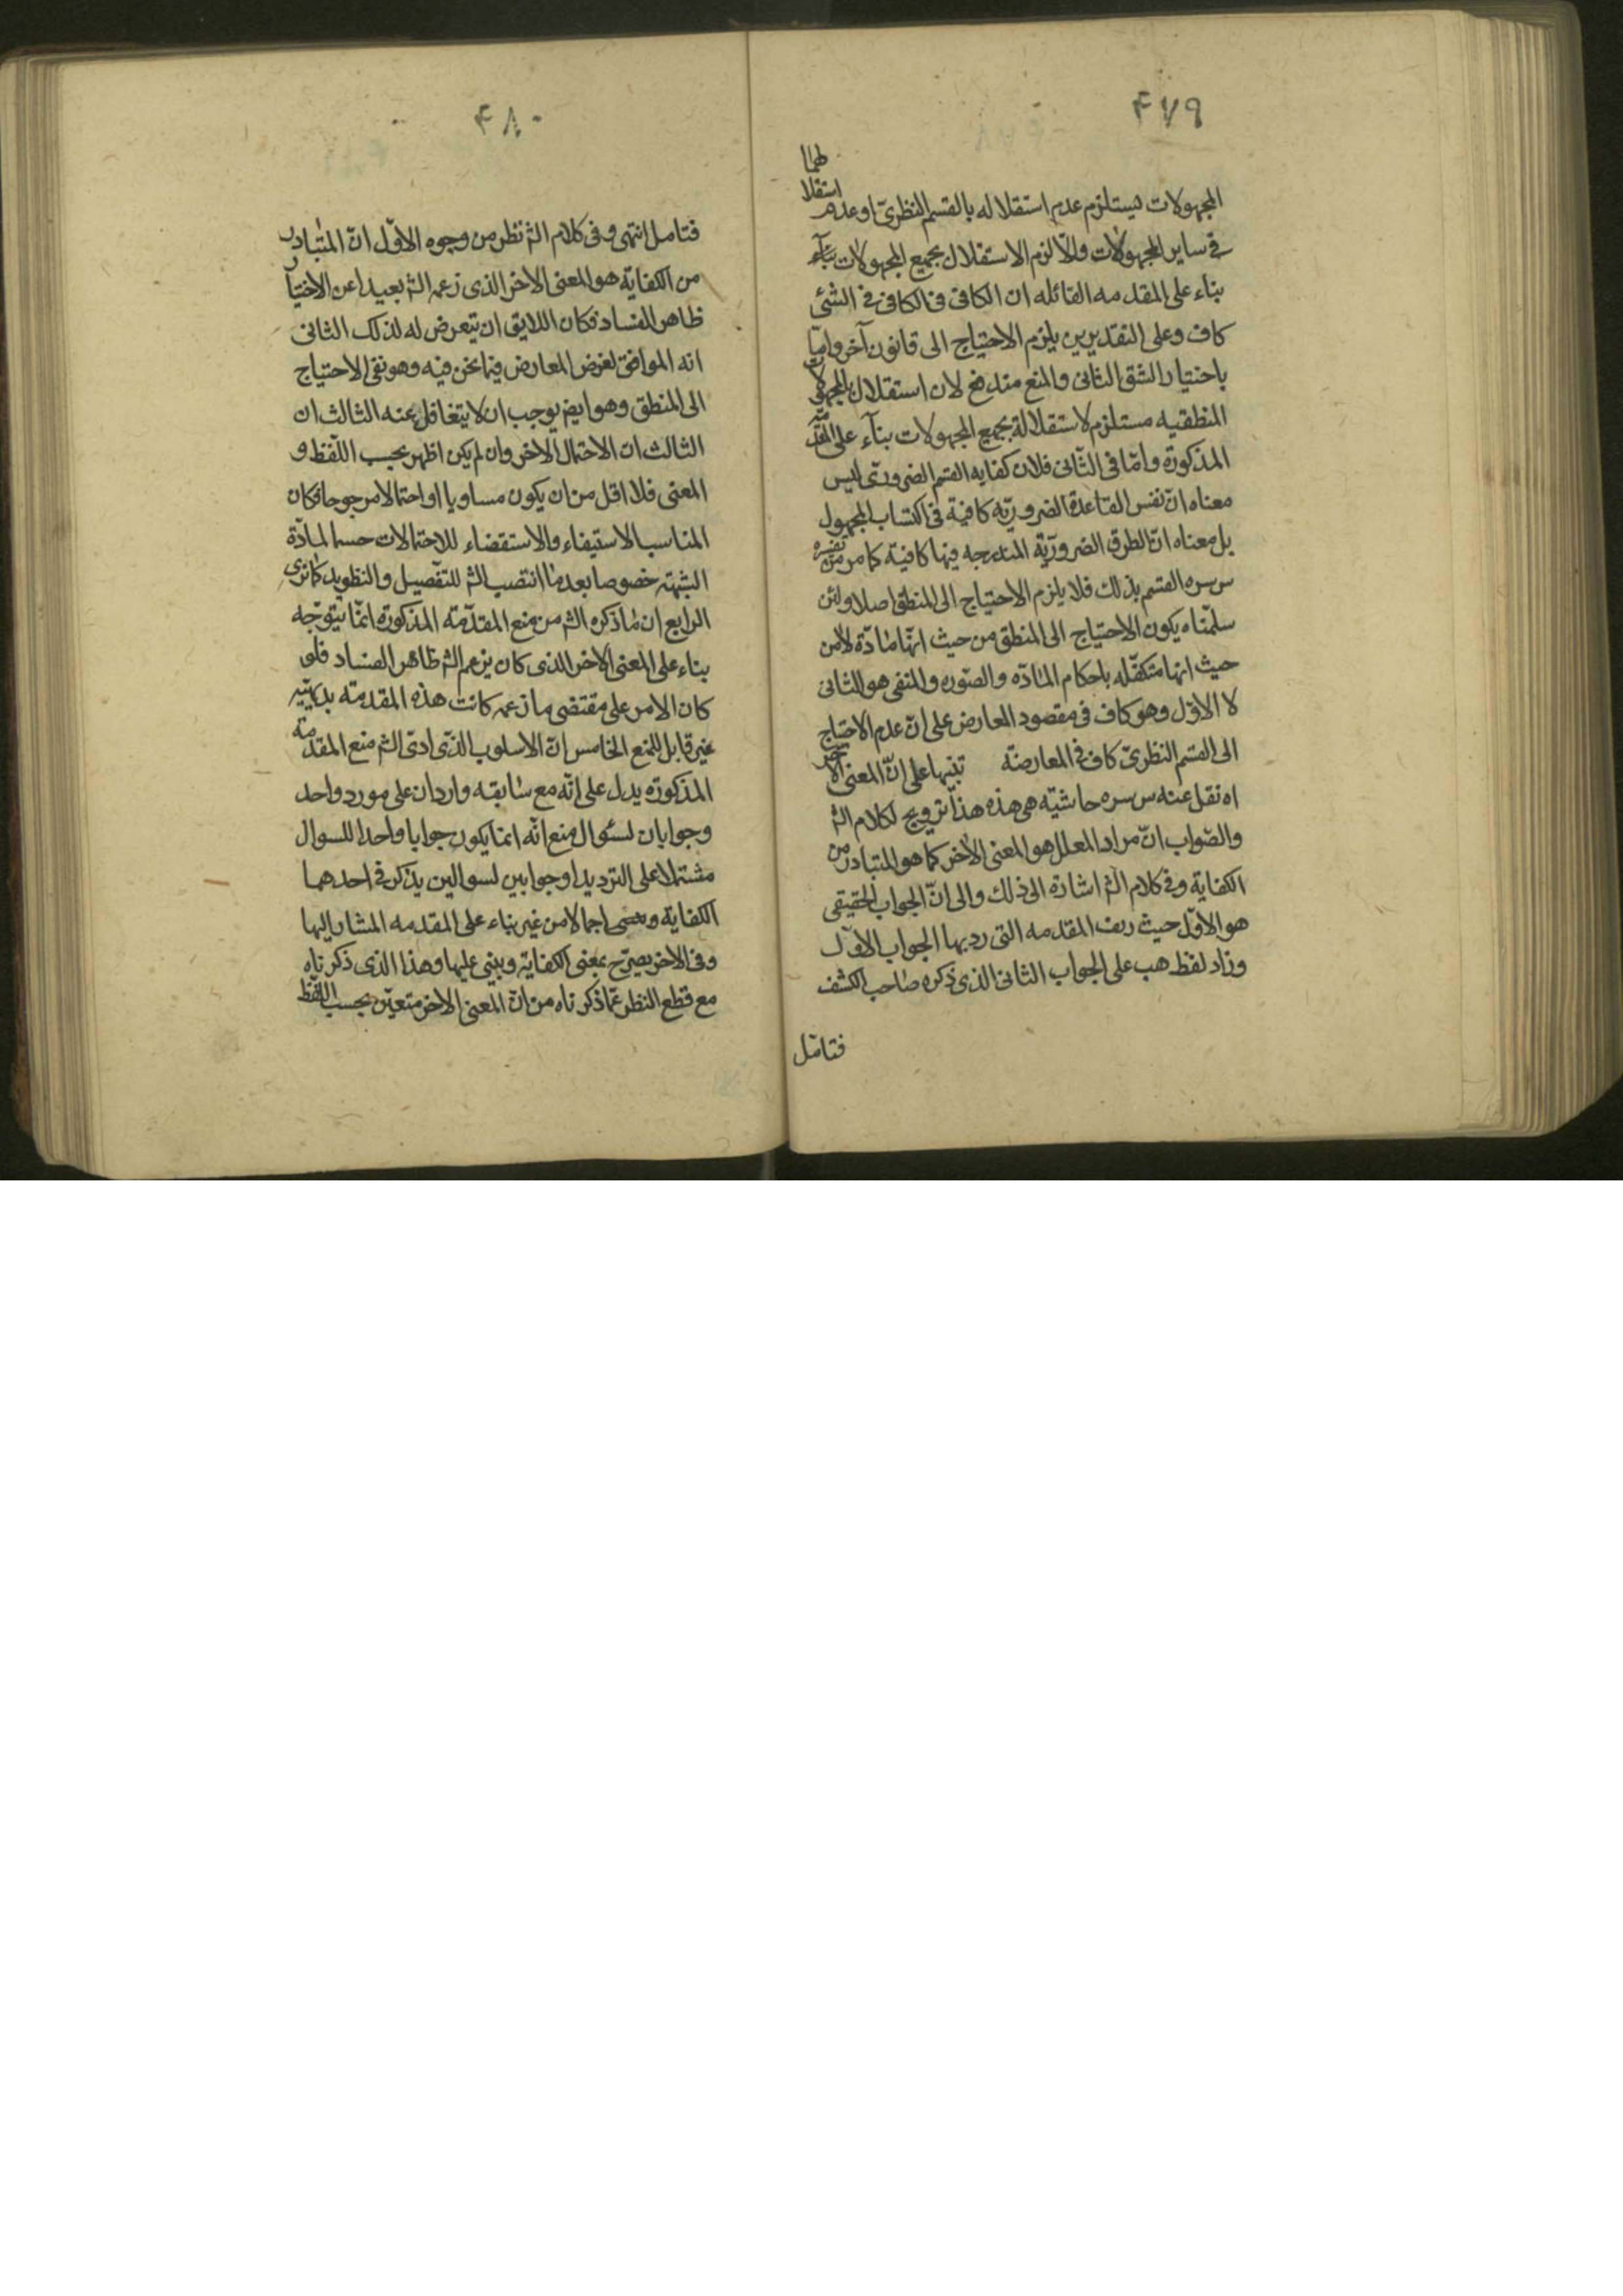 ۴۷۹
لهما
المجهولات يستلزم عدم استقلاله بالقسم النظرىّ او عدم استقلا
فى ساير المجهولات والّا لزم الاستقلال بجميع المجهولات بنآء
بناء على المقدمه القائله ان الكافى فى الكافى فى الشئى
كاف وعلى التقديرين يلزم الاحتياج الى قانون آخر وامّا
باختيار الشق الثانى والمنع مندفع لان استقلال المجهولات
المنطقيه مستلزم لاستقلالة بجميع المجهولات بنآء على المقدّمة
المذكورة وامّا فى الثّانى فلان كفايه القسم الضرورىّ ليس
معناه انّ نفس القاعدة الضروريّه كافية فى اكتساب المجهول
بل معناه انّ الطرق الضروريّة المندرجه فيها كافية كما مر من تفسيره
س سره القسم بذلك فلا يلزم الاحتياج الى المنطق اصلا ولئن
سلّمناه يكون الاحتياج الى المنطق من حيث انّها مادّة لا من
حيث انها متكفّله باحكام المادّه والصّوره والمنفى هو الثانى
لا الاوّل وهو كاف فى مقصود المعارض على انّ عدم الاحتياج
الى القسم النظرىّ كاف فى المعارضة تنبيها على انّ المعنى الاخير
اه نقل عنه س سره حاشيّه هى هذه هذا ترويج لكلام الش
والصّواب انّ مراد المعلل هو المعنى الاخر كما هو المتبادر من
الكفاية وفى كلام الش اشارة الى ذلك والى انّ الجواب الحقيقى
هو الاوّل حيث زيف المقدمه التى رد بها الجواب الاوّل
وزاد لفظ هب على الجواب الثانى الذى ذكره صاحب الكشف
فتامّل
۴۸۰
فتامل انتهى وفى كلام الش نظر من وجوه الاوّل انّ المتبادر
من الكفاية هو المعنى الاخر الذى زعمه الش بعيدا عن الاختيار
ظاهر الفساد فكان اللايق ان يتعرض له لذلك الثانى
انه الموافق لغرض المعارض فيما نحن فيه وهو نفى الاحتياج
الى المنطق وهو ايض يوجب ان لا يتغافل عنه الثالث ان
الثالث ان الاحتمال الاخر وان لم يكن اظهر بحسب اللّفظ و
المعنى فلا اقل من ان يكون مساويا او احتمالا مرجوحا فكان
المناسب الاستيفاء والاستقضاء للاحتمالات حسما لمادّة
الشبهة خصوصا بعد ما انتصب الش للتفصيل والتطويل كما ترى
الرابع ان ما ذكره الش من منع المقدّمة المذكورة انّما يتوجّه
بناء على المعنى الاخر الذى كان يزعم الش ظاهر الفساد فلو
كان الامر على مقتضى ما زعمه كانت هذه المقدمة بديهيّه
غير قابل للمنع الخامس انّ الاسلوب الذّى ادّى الش منع المقدمة
المذكورة يدل على انّه مع سابقه واردان على مورد واحد
وجوابان لسئوال منع انّه انما يكون جوابا واحدا للسوال
مشتملا على الترديد او جوابين لسوالين يذكر فى احدهما
الكفاية اجمالا من غير بناء على المقدمه المشار اليها
وفى الاخر يصرّح بمعنى الكفاية ويبنى عليها وهذا الذى ذكرناه
مع قطع النظر عمّا ذكرناه من انّ المعنى الاخر متعيّن بحسب اللّفظ